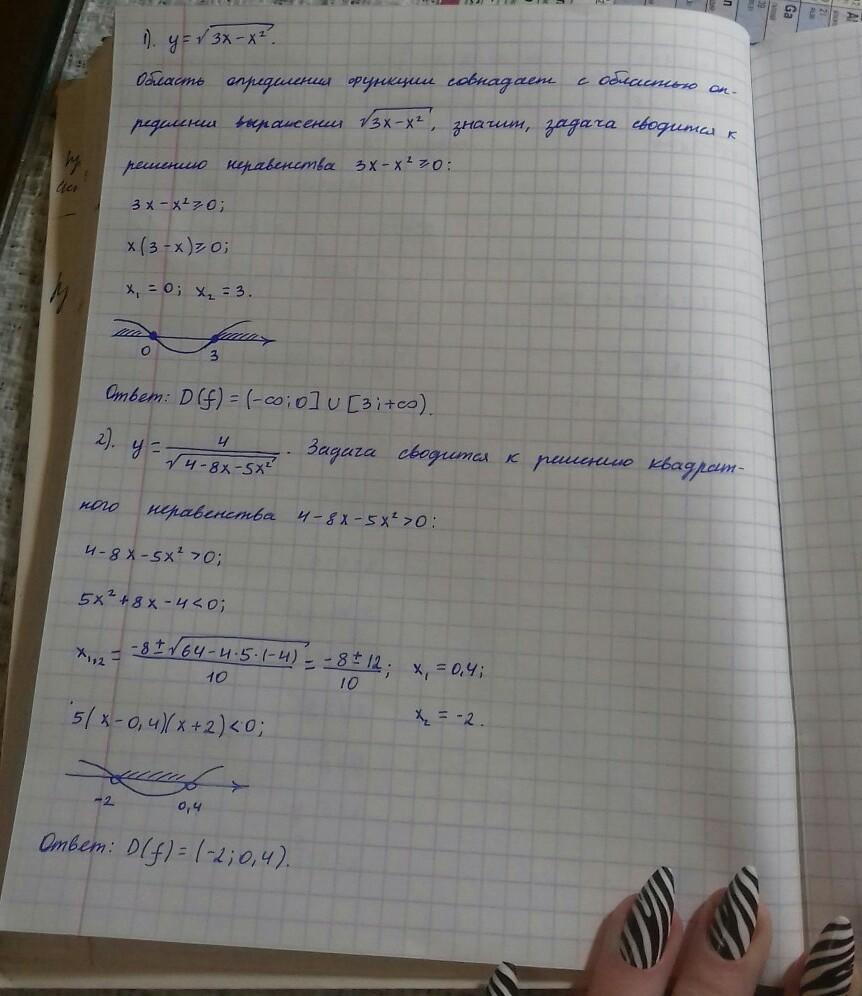 1). y=√3x-x².
Область определения функции совпадает с областью оп-
ределения выражения √3x-x², значит, задача сводится к
решению неравенства 3x-x²≥0:
3x-x²≥0;
x(3-x)≥0;
x₁=0; x₂=3.
0 3
Ответ: D(f)=(-∞;0]∪[3;+∞).
2). y=4/√4-8x-5x². Задача сводится к решению квадрат-
ного неравенства 4-8x-5x²>0:
4-8x-5x²>0;
5x²+8x-4<0;
x₁,₂=-8±√64-4·5·(-4)/10=-8±12/10; x₁=0,4;
5(x-0,4)(x+2)<0; x₂=-2.
-2 0,4
Ответ: D(f)=(-2;0,4).
Ga